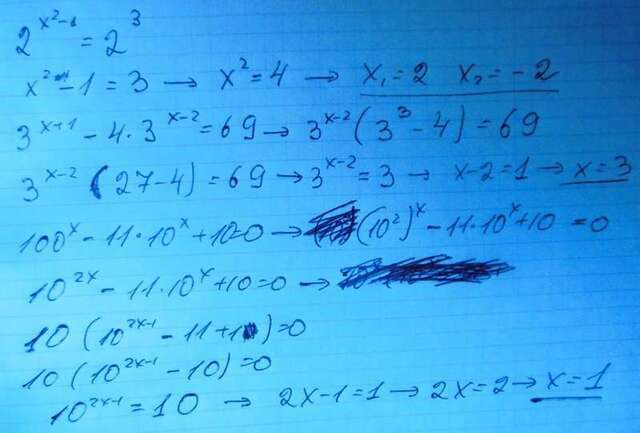 2^{x²-1} = 2³
x² - 1 = 3 → x² = 4 → x₁ = 2 x₂ = -2
3^{x+1} - 4·3^{x-2} = 69 → 3^{x-2} (3³ - 4) = 69
3^{x-2} (27 - 4) = 69 → 3^{x-2} = 3 → x - 2 = 1 → x = 3
100^x - 11·10^x + 10 = 0 → (10²)^x - 11·10^x + 10 = 0
10^{2x} - 11·10^x + 10 = 0 →
10 (10^{2x-1} - 11 + 1) = 0
10 (10^{2x-1} - 10) = 0
10^{2x-1} = 10 → 2x - 1 = 1 → 2x = 2 → x = 1